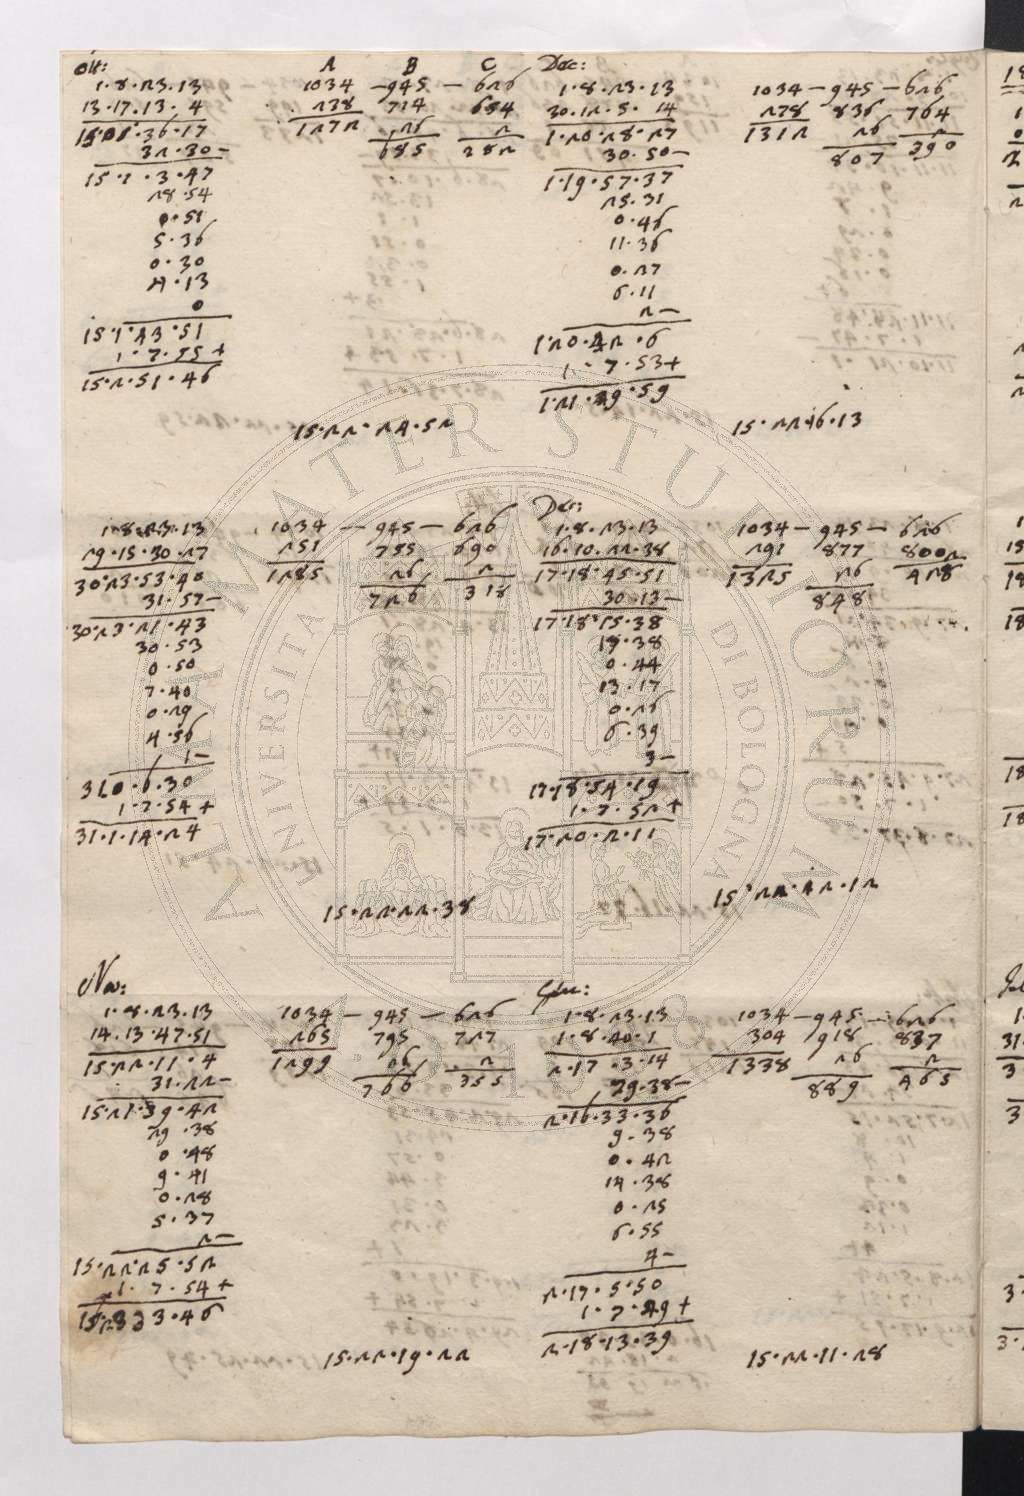 Ott:
A B C
1·8·23·13 1034 – 945 – 626
13·17·13·4 238 714 654
15·01·36·17 1272 26 2
32·30– 685 282
15·1·3·47
28·54
0·51
5·36
0·30
4·13
0
15·1·43·51
1·7·55+
15·2·51·46
15·22·24·52
Dec:
1·8·23·13 1034 – 945 – 626
30·12·5·14 278 836 764
1·20·28·27 1312 26 2
30·50– 807 390
1·19·57·37
25·31
0·46
11·36
0·27
6·11
2–
1·20·42·6
1·7·53+
1·21·49·59
15·22·46·13
1·8·23·13 1034 – 945 – 626
29·15·30·27 251 755 690
30·23·53·40 1285 26 2
31·57– 726 318
30·23·21·43
30·53
0·50
7·40
0·29
4·56
1–
31·0·6·30
1·7·54+
31·1·14·24
15·22·22·38
Dec:
1·8·23·13 1034 – 945 – 626
16·10·22·38 291 877 800
17·18·45·51 1325 26 2
30·13– 848 428
17·18·15·38
19·38
0·44
13·17
0·26
6·39
3–
17·18·54·19
1·7·52+
17·20·2·11
15·22·42·12
Nov:
1·8·23·13 1034 – 945 – 626
14·13·47·51 265 795 727
15·22·11·4 1299 26 2
31·22– 766 355
15·21·39·42
29·38
0·48
9·41
0·28
5·37
2–
15·22·25·52
1·7·54+
15·23·33·46
15·22·19·22
1·8·23·13 1034 – 945 – 626
1·8·40·1 304 918 837
2·17·3·14 1338 26 2
29·38– 889 465
2·16·33·36
9·38
0·42
14·38
0·25
6·55
4–
2·17·5·50
1·7·49+
2·18·13·39
15·22·11·28
ALMA MATER STUDIORUM
UNIVERSITÀ DI BOLOGNA